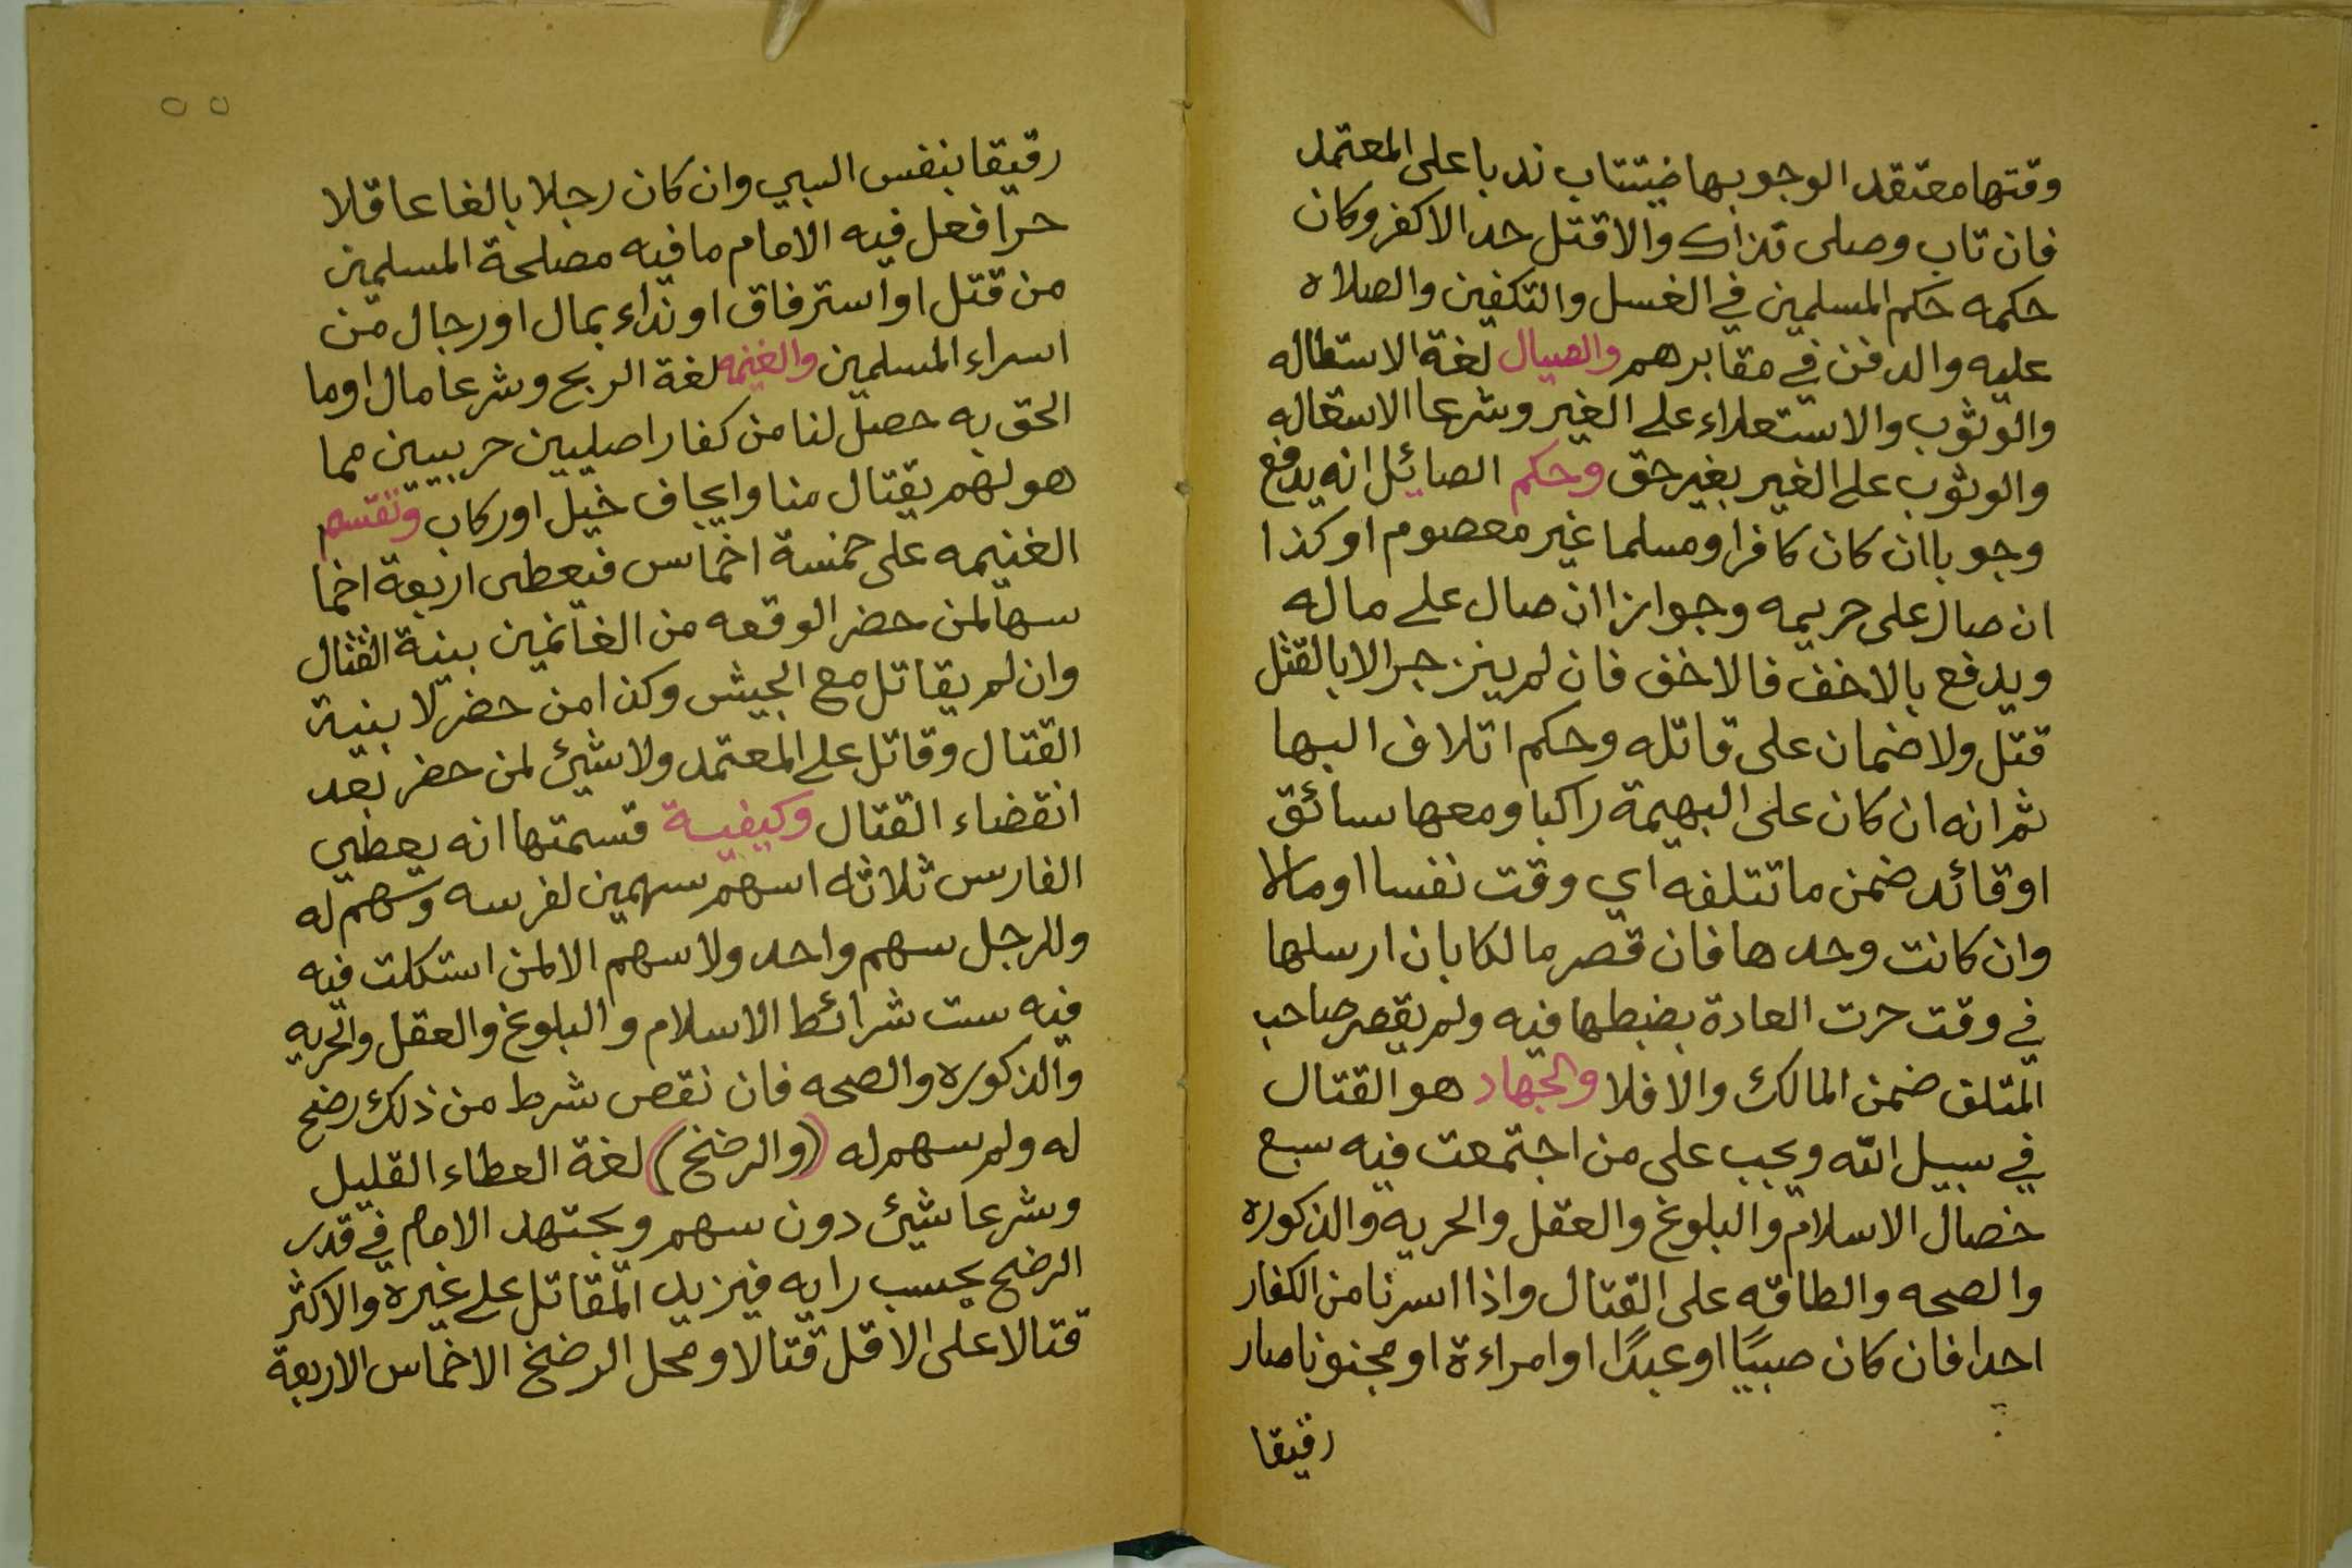 وقتها معتقد الوجوبها فيتتاب ندبا على المعتمد
فان تاب وصلى تذاك والا قتل حدا لا كفر وكان
حكمه حكم المسلمين في الغسل والتكفين والصلاه
عليه والدفن في مقابرهم والصيال لغة الاستطاله
والوثوب والاستعلاء على الغير وشرعا الاستعاله
والوثوب على الغير بغير حق وحكم الصائل انه يدفع
وجوبا ان كان كافرا ومسلما غير معصوم او كذا
ان صال على حريمه وجوازا ان صال على ماله
ويدفع بالاخف فالاخف فان لم ينزجر الا بالقتل
قتل ولا ضمان على قاتله وحكم اتلاف البها
ثم انه ان كان على البهيمة راكبا ومعها سائق
او قائد ضمن ما تتلفه اي وقت نفسا او مالا
وان كانت وحدها فان قصر مالكا بان ارسلها
في وقت حرت العادة بضبطها فيه ولم يقصر صاحب
المتلق ضمن المالك والا فلا والجهاد هو القتال
في سبيل الله ويجب على من اجتمعت فيه سبع
خصال الاسلام والبلوغ والعقل والحريه والذكوره
والصحه والطاقه على القتال واذا اسرنا من الكفار
احدا فان كان صبيًا او عبدًا او امراءة او مجنونا صار
رقيقا
٥٥
رقيقا بنفس السبي وان كان رجلا بالغا عاقلا
حرا فعل فيه الامام ما فيه مصلحة المسلمين
من قتل او استرقاق او نداء بمال او رجال من
اسراء المسلمين والغنمه لغة الربح وشرعا مال او ما
الحق به حصل لنا من كفار اصليين حربيين مما
هو لهم بقتال منا وايجاف خيل او ركاب وتقسم
الغنيمه على خمسة اخماس فيعطى اربعة اخما
سها لمن حضر الوقعه من الغانمين بنية القتال
وان لم يقاتل مع الجيش وكذا من حضر لا بنية
القتال وقاتل على المعتمد ولا شيئ لمن حضر بعد
انقضاء القتال وكيفيية قسمتها انه يعطي
الفارس ثلاثه اسهم سهمين لفرسه وسهم له
وللرجل سهم واحد ولا سهم الا لمن استكلت فيه
فيه ست شرائط الاسلام والبلوغ والعقل والحريه
والذكوره والصحه فان نقص شرط من ذلك رضخ
له ولم سهم له (والرضخ) لغة العطاء القليل
وشرعا شيئ دون سهم ويجتهد الامام في قدر
الرضخ بحسب رايه فيزيد المقاتل على غيره والاكثر
قتالا على الاقل قتالا ومحل الرضخ الاخماس الاربعة